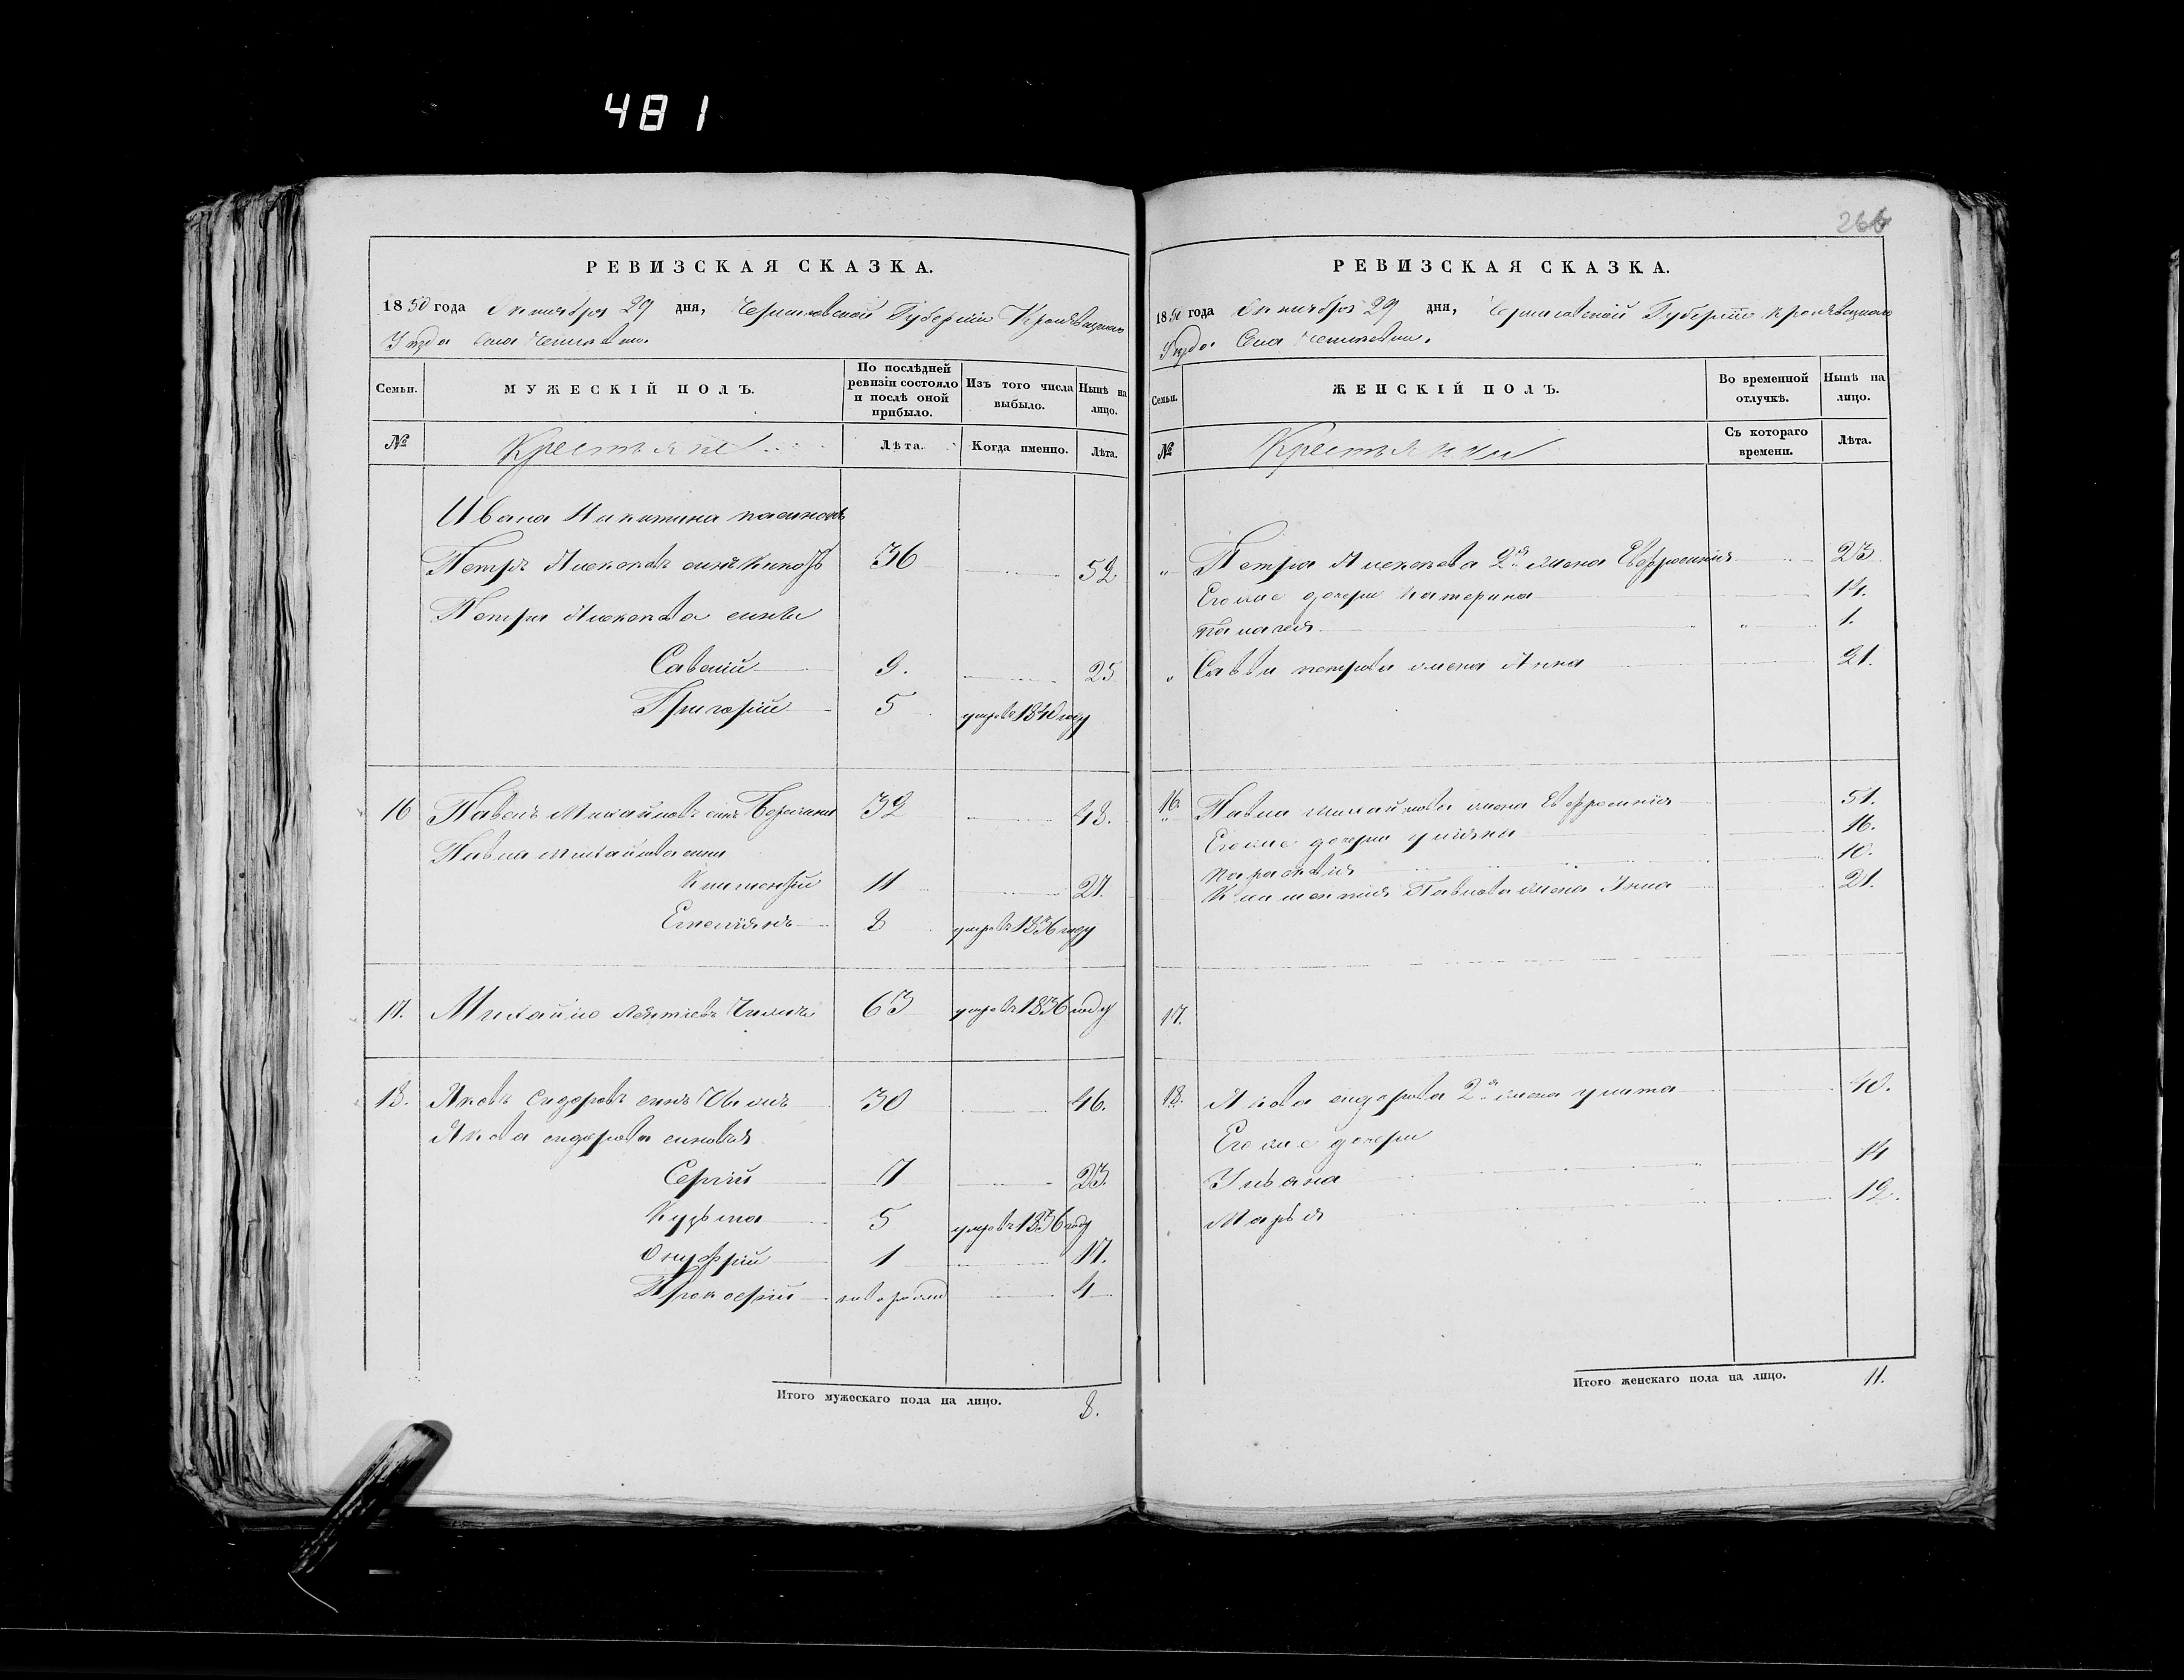 481
266
РЕВИЗСКАЯ СКАЗКА.
1850 года Октября 29 дня, Черниговской Губернiи Кролѣвецкаго
Уѣзда Села
Семьи. МУЖЕСКIЙ ПОЛЪ. По послѣдней ревизiи состояло и послѣ оной прибыло. Изъ того числа выбыло. Нынѣ на лицо.
№ Крестьяне Лѣта. Когда именно. Лѣта.
Ивана Никитина пасынокъ
Петръ Алексѣевъ сынъ 36 52
Петра Алексѣева сыны
Савелiй 9. 25
Григорiй 5 умре въ 1840 году
16 Павелъ Михайловъ сынъ 32 48.
Павла Михайлова сыны
Климентiй 11 27.
Емелiянъ 8 умре въ 1836 году
17. Михайло Леонтiевъ 63 умре въ 1836 году
18. Яковъ Сидоровъ сынъ 30 46.
Якова Сидорова сыновья
Сергiй 7 23.
Кузьма 5 умре въ 1836 году
Онуфрiй 1 17.
Прокофiй новорожд 4
Итого мужескаго пола на лицо. 8.
РЕВИЗСКАЯ СКАЗКА.
1850 года Октября 29 дня, Черниговской Губернiи Кролѣвецкаго
Уѣзда Села
Семьи. ЖЕНСКIЙ ПОЛЪ. Во временной отлучкѣ. Нынѣ на лицо.
№ Крестьянки Съ котораго времени. Лѣта.
„ Петра Алексѣева 2я жена Евфросинiя 23
Его же дочери Катерина 14.
Палагея „ 1.
„ Саввы Петрова жена Анна 21.
16. Павла Михайлова жена Евфросинiя 51.
Его же дочери Улiяна 16.
Параскевiя 10.
Климентiя Павлова жена Анна 21.
17.
18. Якова Сидорова 2я жена Улита 40.
Его же дочери
Ульяна 14
Марья 12.
Итого женскаго пола на лицо. 11.